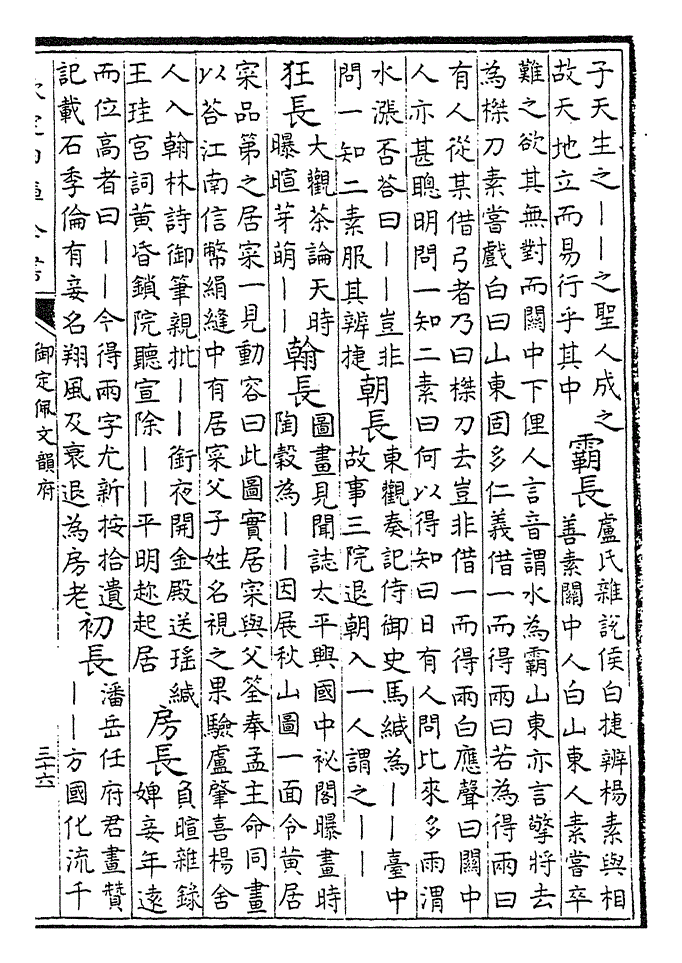 子天生之——之聖人成之
故天地立而易行乎其中
霸長
盧氏雜說侯白捷辨楊素與相
善素關中人白山東人素嘗卒
難之欲其無對而關中下俚人言音謂水為霸山東亦言擎將去
為榤刀素嘗戲白曰山東固多仁義借一而得兩曰若為得兩曰
有人從某借弓者乃曰榤刀去豈非借一而得兩白應聲曰關中
人亦甚聰明問一知二素曰何以得知曰日有人問比來多雨渭
水漲否答曰——豈非
問一知二素服其辨捷
朝長
東觀奏記侍御史馬緘為——臺中
故事三院退朝入一人謂之——
狂長
大觀茶論天時
曝暄芽萌——
翰長
圖畫見聞誌太平興國中祕閣曝畫時
陶穀為——因展秋山圖一面令黃居
寀品第之居寀一見動容曰此圖實居寀與父筌奉孟主命同畫
以荅江南信幣絹縫中有居寀父子姓名視之果驗盧肇喜楊舍
人入翰林詩御筆親批——銜夜開金殿送瑤緘
王珪宮詞黃昏鎖院聽宣除——平明趂起居
房長
負暄雜錄
婢妾年遠
而位高者曰——今得兩字尤新按拾遺
記載石季倫有妾名翔風及衰退為房老
初長
潘岳任府君畫贊
——方國化流千
御定佩文韻府
三十六